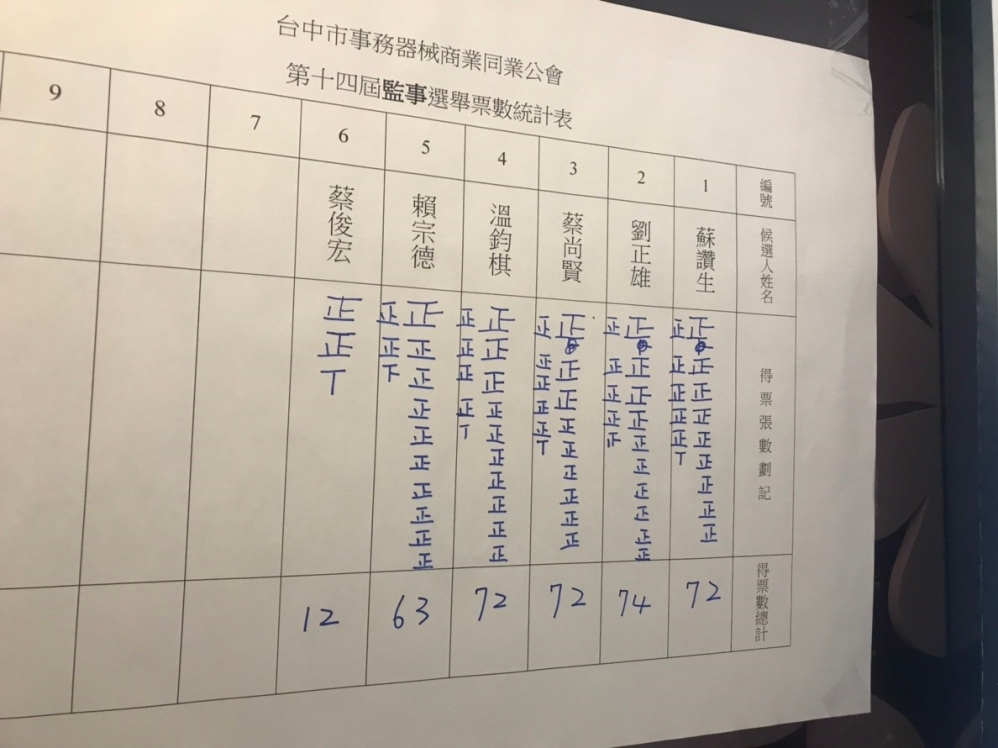 台中市事務器械商業同業公會
第十四屆監事選舉票數統計表
編號 1 2 3 4 5 6 7 8 9
候選人姓名 蘇讚生 劉正雄 蔡尚賢 溫鈞棋 賴宗德 蔡俊宏
得票張數劃記
正正正正正正正正正 正正正正正丅
正正正正正正正正正正 正正正正下
正正正正正正正正正 正正正正正丅
正正正正正正正正正正 正正正正丅
正正正正正正正正正正 正正下
正正丅
得票數總計 72 74 72 72 63 12